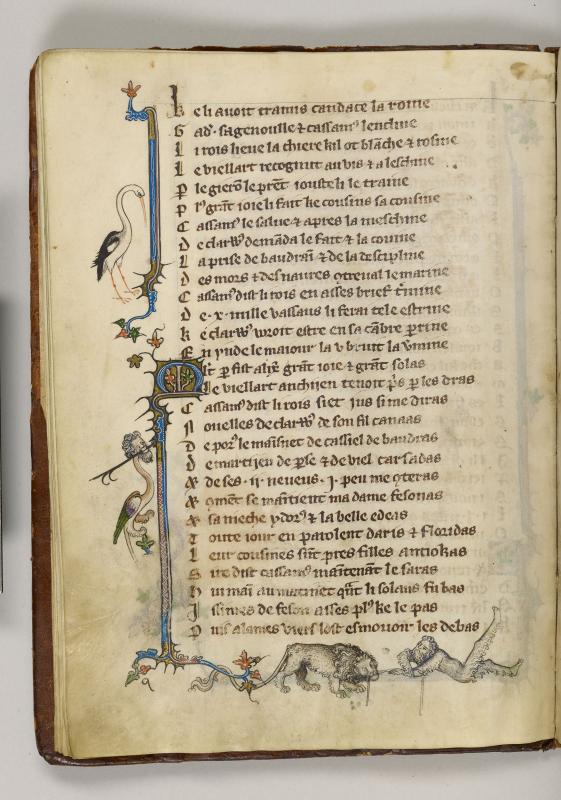 k e li auoit tramis candace la roine
G ad᷒ sagenoulle & cassam᷒ lencline
L i rois lieue la chiere kil ot blāche & rosine
L e viellart recognut au vis & a leschine
P le gierō le prēt iouste li le traine
P l᷒ grāt ioie li fait ke cousins sa cousine
C assam᷒ le salue & apres la meschine
D e clarw᷒ demāda le fait & la couine
L a prise de baudrai & de la desciplíne
D es mors & des naures
C assam᷒ dist li rois en asses brief t̄mine
D e .x. mille vassaus li ferai tele estrine
k e clarw᷒ wroit estre en sa cābre perine
E n ynde le maiour la v bruit la v̄mine
grāt ioie & grāt solas
le viellart anchijen tenoit p les dras
C assam᷒ dist li rois siet ius si me diras
N ouelles de clarw᷒ de son fil canaas
D e por᷒ le mainsnet de cassiel de baudras
D e martijen de pse & de viel carsadas
& de ses .ii. neueus .i. peu me gteras
& gmēt se maītient ma dame fesonas
& sa meche ydor᷒ & la belle edeas
T oute iour en parolent daris & floridas
L eur cousines sūt pres filles antiokas
S ire dist cassam᷒ maītenāt le saras
h ui mai au matinet qāt li solaus fu bas
I ssimes de feson asses pl᷒ ke le pas
P uis alames viers lost esmouoir les debas